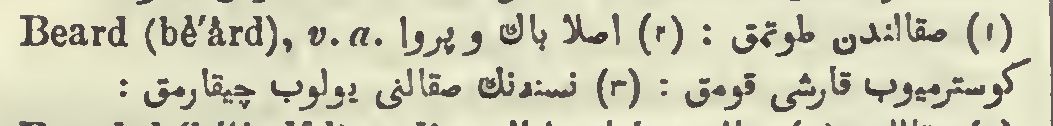 Beard (bê′ârd), v. a. (١) صقالندن طوتمق : (٢) اصلا باك و پروا
كوسترميوب قارشی قومق : (٣) نسنه‌نك صقالنی يولوب چيقارمق :